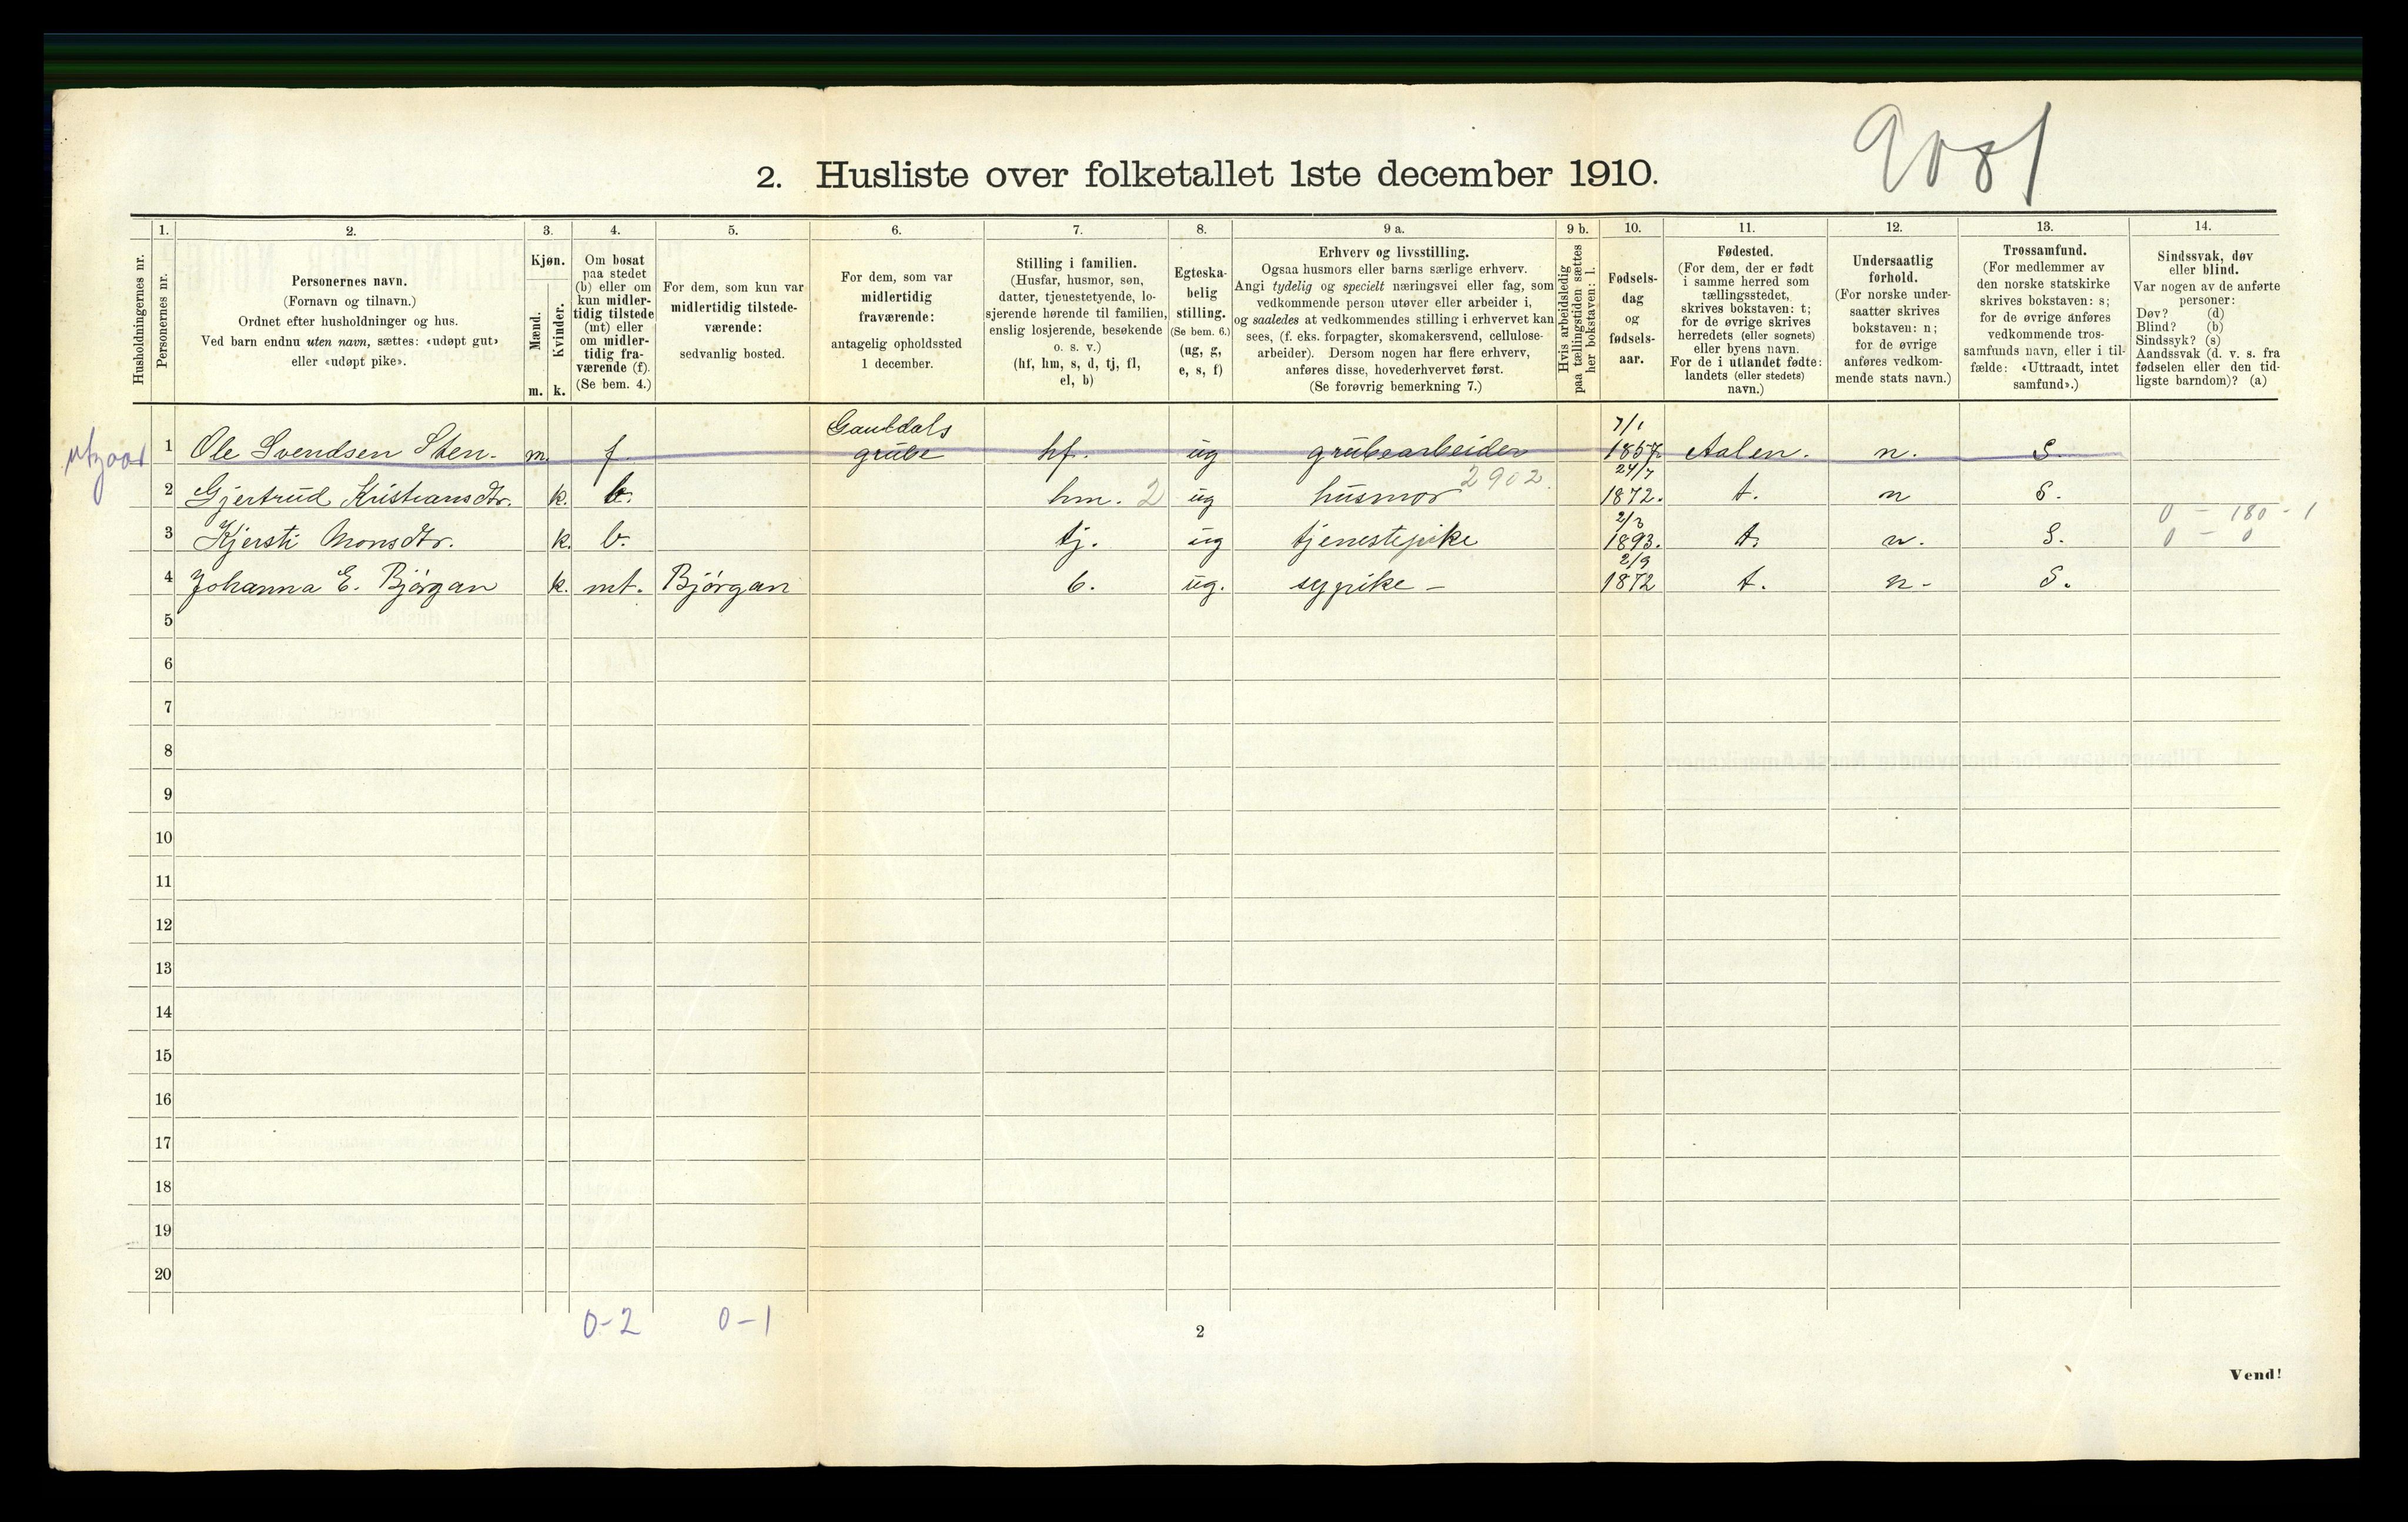 9081
2. Husliste over folketallet 1ste december 1910.
Husholdningernes nr.
1. Personernes nr.
2.
Personernes navn.
(Fornavn og tilnavn.)
Ordnet efter husholdninger og hus.
Ved barn endnu uten navn, sættes: «udøpt gut»
eller «udøpt pike».
3.
Kjøn.
Mænd. Kvinder.
m. k.
4.
Om bosat
paa stedet
(b) eller om
kun midler-
tidig tilstede
(mt) eller
om midler-
tidig fra-
værende (f).
(Se bem. 4.)
5.
For dem, som kun var
midlertidig tilstede-
værende:
sedvanlig bosted.
6.
For dem, som var
midlertidig
fraværende:
antagelig opholdssted
1 december.
7.
Stilling i familien.
(Husfar, husmor, søn,
datter, tjenestetyende, lo-
sjerende hørende til familien,
enslig losjerende, besøkende
o. s. v.)
(hf, hm, s, d, tj, fl,
el, b)
8.
Egteska-
belig
stilling.
(Se bem. 6.)
(ug, g,
e, s, f)
9 a.
Erhverv og livsstilling.
Ogsaa husmors eller barns særlige erhverv.
Angi tydelig og specielt næringsvei eller fag, som
vedkommende person utøver eller arbeider i,
og saaledes at vedkommendes stilling i erhvervet kan
sees, (f. eks. forpagter, skomakersvend, cellulose-
arbeider). Dersom nogen har flere erhverv,
anføres disse, hovederhvervet først.
(Se forøvrig bemerkning 7.)
9 b.
Hvis arbeidsledig
paa tællingstiden sættes
her bokstaven: l.
10.
Fødsels-
dag
og
fødsels-
aar.
11.
Fødested.
(For dem, der er født
i samme herred som
tællingsstedet,
skrives bokstaven: t;
for de øvrige skrives
herredets (eller sognets)
eller byens navn.
For de i utlandet fødte:
landets (eller stedets)
navn.)
12.
Undersaatlig
forhold.
(For norske under-
saatter skrives
bokstaven: n;
for de øvrige
anføres vedkom-
mende stats navn.)
13.
Trossamfund.
(For medlemmer av
den norske statskirke
skrives bokstaven: s;
for de øvrige anføres
vedkommende tros-
samfunds navn, eller i til-
fælde: «Uttraadt, intet
samfund».)
14.
Sindssvak, døv
eller blind.
Var nogen av de anførte
personer:
Døv? (d)
Blind? (b)
Sindssyk? (s)
Aandssvak (d. v. s. fra
fødselen eller den tid-
ligste barndom)? (a)
utgaar 1 Ole Svendsen Sten. m. f. Gauldals grube hf. ug grubearbeider 7/1 1857. Aalen. n. S.
2 Gjertrud Kristiansdtr. k. b. hm. 2 ug husmor 2902. 24/7 1872. t. n S.
0 - 180 - 1
3 Kjersti Monsdtr. k. b. tj. ug tjenestepike 2/3 1893. t. n. S. 0 - 0
4 Johanna E. Bjørgan k. mt. Bjørgan b. ug. sypike - 2/9 1872 t. n- S.
5
6
7
8
9
10
11
12
13
14
15
16
17
18
19
20
0-2 0-1
2
Vend!